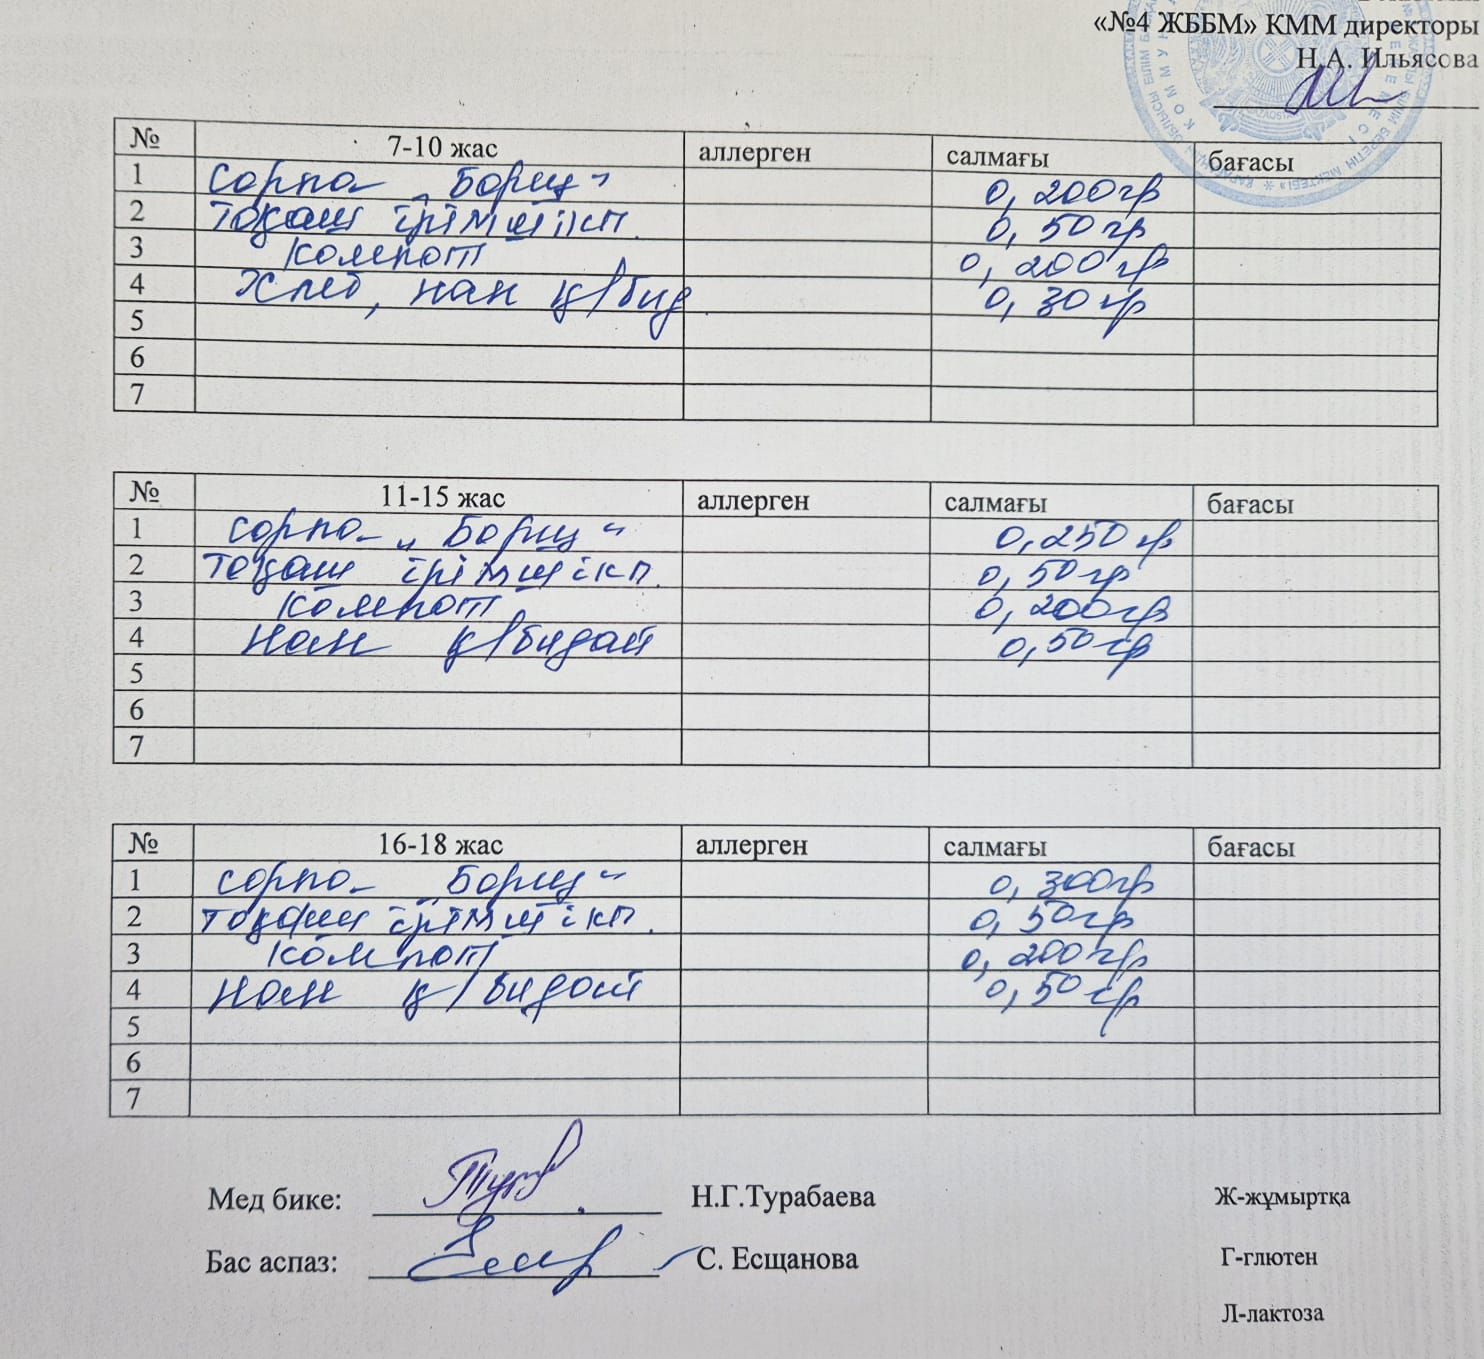 «№4 ЖББМ» КММ директоры
Н.А. Ильясова
№ 7-10 жас аллерген салмағы бағасы
1 сорпа „Борщ" 0,200гр
2 тоқаш ірімшікп. 0,50гр
3 компот 0,200гр
4 Хлеб, нан қ/бид. 0,30гр
5
6
7
№ 11-15 жас аллерген салмағы бағасы
1 сорпа „Борщ" 0,250гр
2 тоқаш ірімшікп. 0,50гр
3 компот 0,200гр
4 нан қ/бидай 0,50гр
5
6
7
№ 16-18 жас аллерген салмағы бағасы
1 сорпа „Борщ" 0,300гр
2 тоқаш ірімшікп. 0,50гр
3 компот 0,200гр
4 нан қ/бидай 0,50гр
5
6
7
Мед бике: Н.Г.Турабаева Ж-жұмыртқа
Бас аспаз: С. Есщанова Г-глютен
Л-лактоза